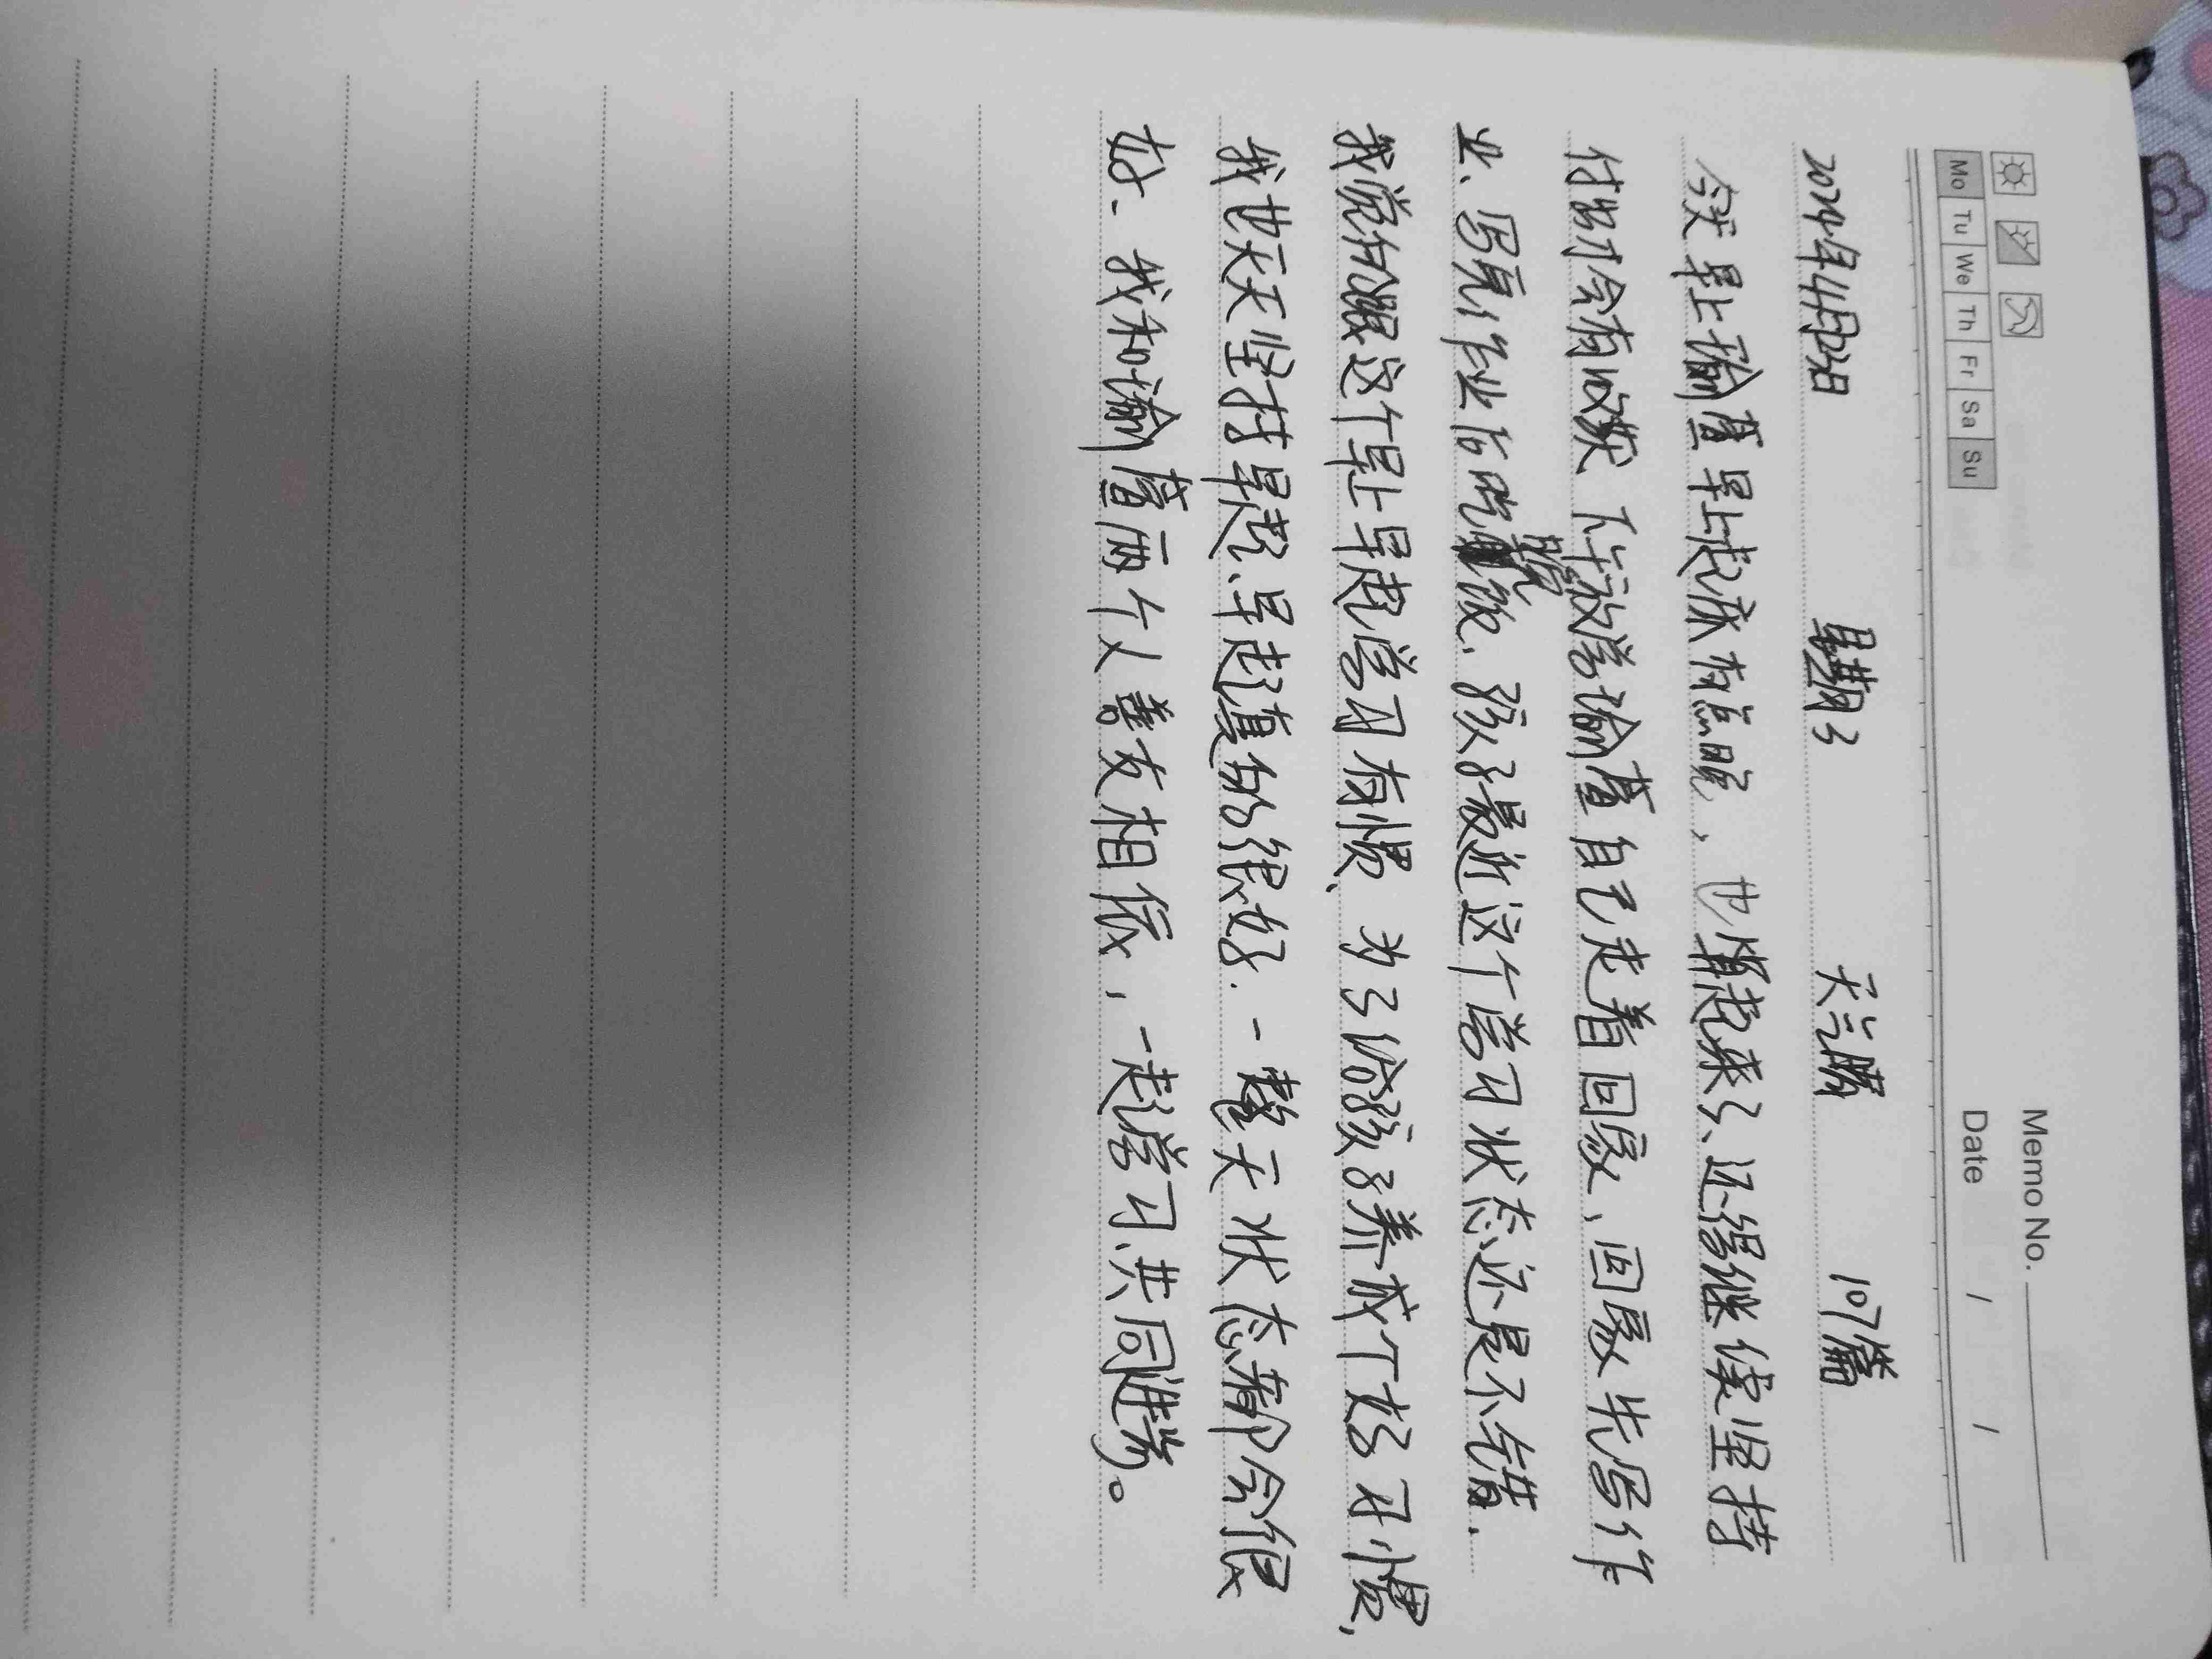 Memo No.
Mo Tu We Th Fr Sa Su
Date / /
2024年4月23日 星期2 107篇
今天早上瑜萱早上起床有点晚，也准起来了、还得继续坚持
付出才会有收获 下午放学瑜萱自己走着回家、回家先写作
业、写完作业后吃晚饭. 孩子最近这个学习状态还是不错.
我觉得这个早上早起学习有惯、为了给孩子养成个好习惯,
我也天天坚持早起、早起真的很好. 一整天状态都会很
好、我和瑜萱两个人善友相依，一起学习、共同进步。